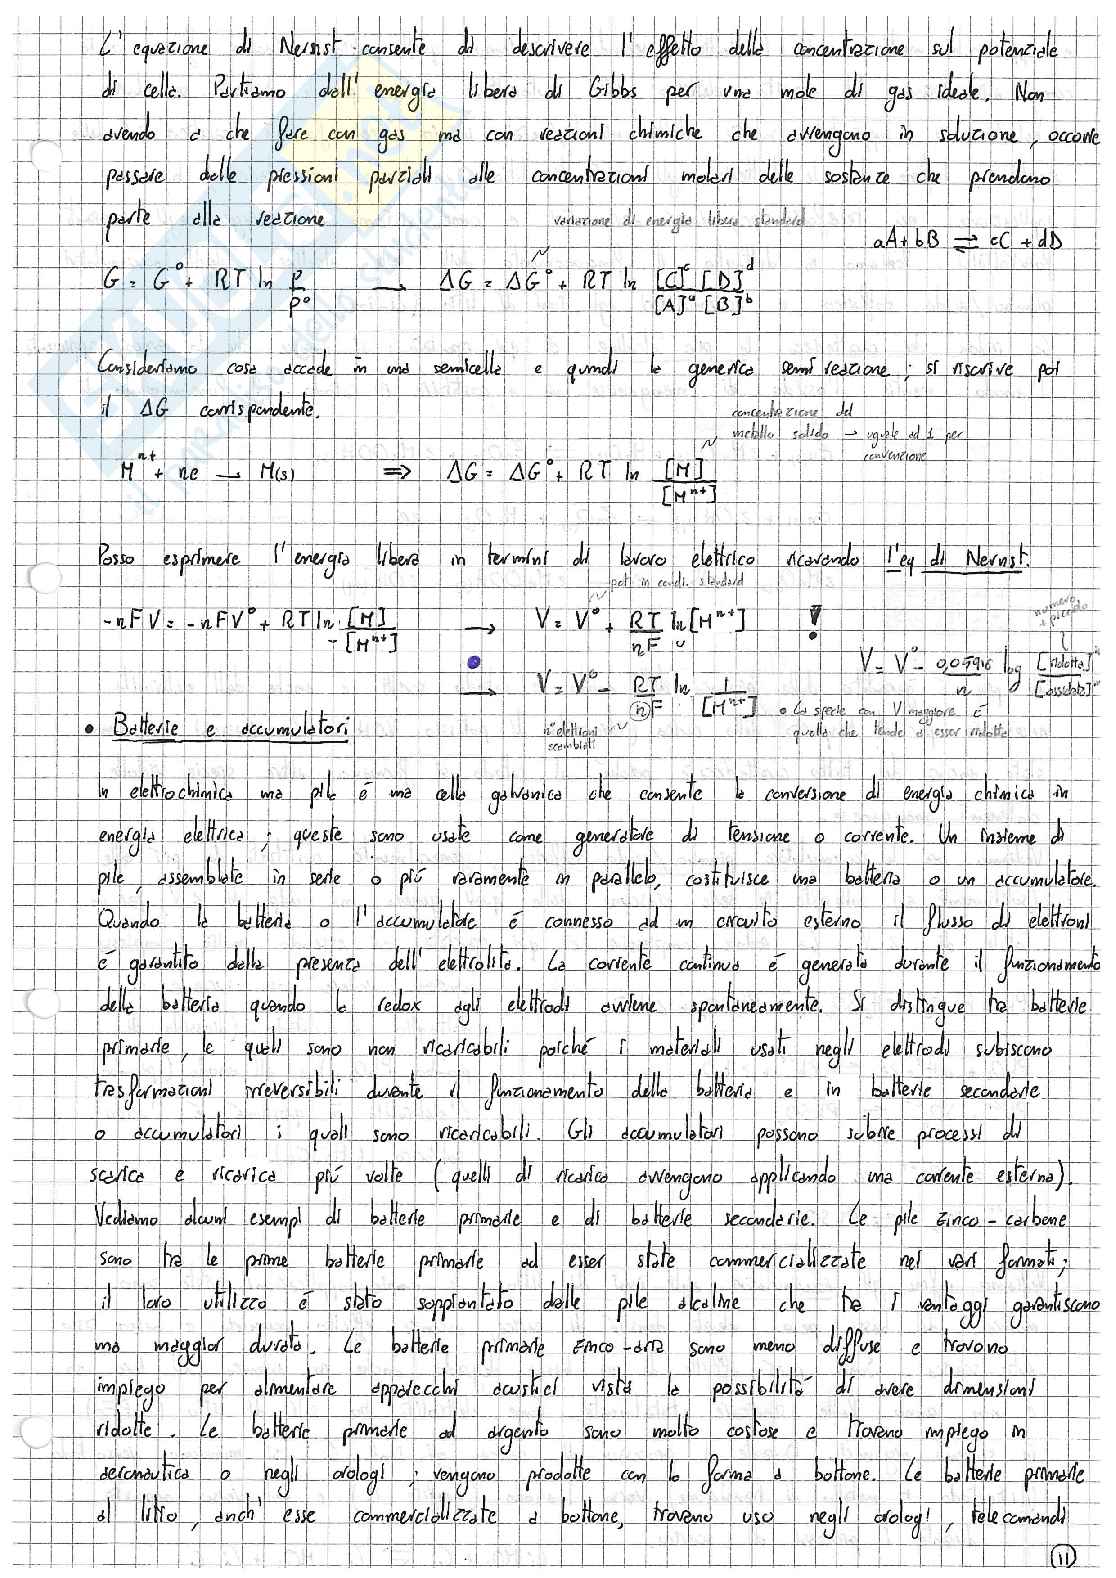 L'equazione di Nernst consente di descrivere l'effetto della concentrazione sul potenziale
di cella. Partiamo dall'energia libera di Gibbs per una mole di gas ideale. Non
avendo a che fare con gas ma con reazioni chimiche che avvengono in soluzione, occorre
passare dalle pressioni parziali alle concentrazioni molari delle sostanze che prendono
parte alla reazione
variazione di energia libera standard
aA + bB ⇌ cC + dD
G = G° + RT ln P/P° → ΔG = ΔG° + RT ln [C]^c [D]^d / [A]^a [B]^b
Consideriamo cosa accade in una semicella e quindi la generica semi reazione; si riscrive poi
il ΔG corrispondente.
concentrazione del
metallo solido → uguale ad 1 per
convenzione
M^n+ + ne → M(s) ⇒ ΔG = ΔG° + RT ln [M]/[M^n+]
Posso esprimere l'energia libera in termini di lavoro elettrico ricavando l'eq di Nernst.
pot. in condi. standard
numero
+ piccolo
-nFV = -nFV° + RT ln [M]/[M^n+] → V = V° + RT/nF ln [M^n+] !
V = V° - 0,05916/n log [ridotta]/[ossidata]
→ V = V° - RT/nF ln 1/[M^n+]
• La specie con V maggiore è
quella che tende a esser ridotta
n° elettroni
scambiati
• Batterie e accumulatori
In elettrochimica una pila è una cella galvanica che consente la conversione di energia chimica in
energia elettrica; queste sono usate come generatore di tensione o corrente. Un insieme di
pile, assemblate in serie o più raramente in parallelo, costituisce una batteria o un accumulatore.
Quando la batteria o l'accumulatore è connesso ad un circuito esterno il flusso di elettroni
è garantito dalla presenza dell'elettrolita. La corrente continua è generata durante il funzionamento
della batteria quando la redox agli elettrodi avviene spontaneamente. Si distingue tra batterie
primarie, le quali sono non ricaricabili poiché i materiali usati negli elettrodi subiscono
trasformazioni irreversibili durante il funzionamento della batteria e in batterie secondarie
o accumulatori i quali sono ricaricabili. Gli accumulatori possono subire processi di
scarica e ricarica più volte (quelli di ricarica avvengono applicando una corrente esterna).
Vediamo alcuni esempi di batterie primarie e di batterie secondarie. Le pile zinco-carbone
sono tra le prime batterie primarie ad esser state commercializzate nei vari formati;
il loro utilizzo è stato soppiantato dalle pile alcaline che tra i vantaggi garantiscono
una maggior durata. Le batterie primarie zinco-aria sono meno diffuse e trovano
impiego per alimentare apparecchi acustici vista la possibilità di avere dimensioni
ridotte. Le batterie primarie ad argento sono molto costose e trovano impiego in
aeronautica o negli orologi; vengono prodotte con la forma a bottone. Le batterie primarie
al litio, anch'esse commercializzate a bottone, trovano uso negli orologi, telecomandi
11